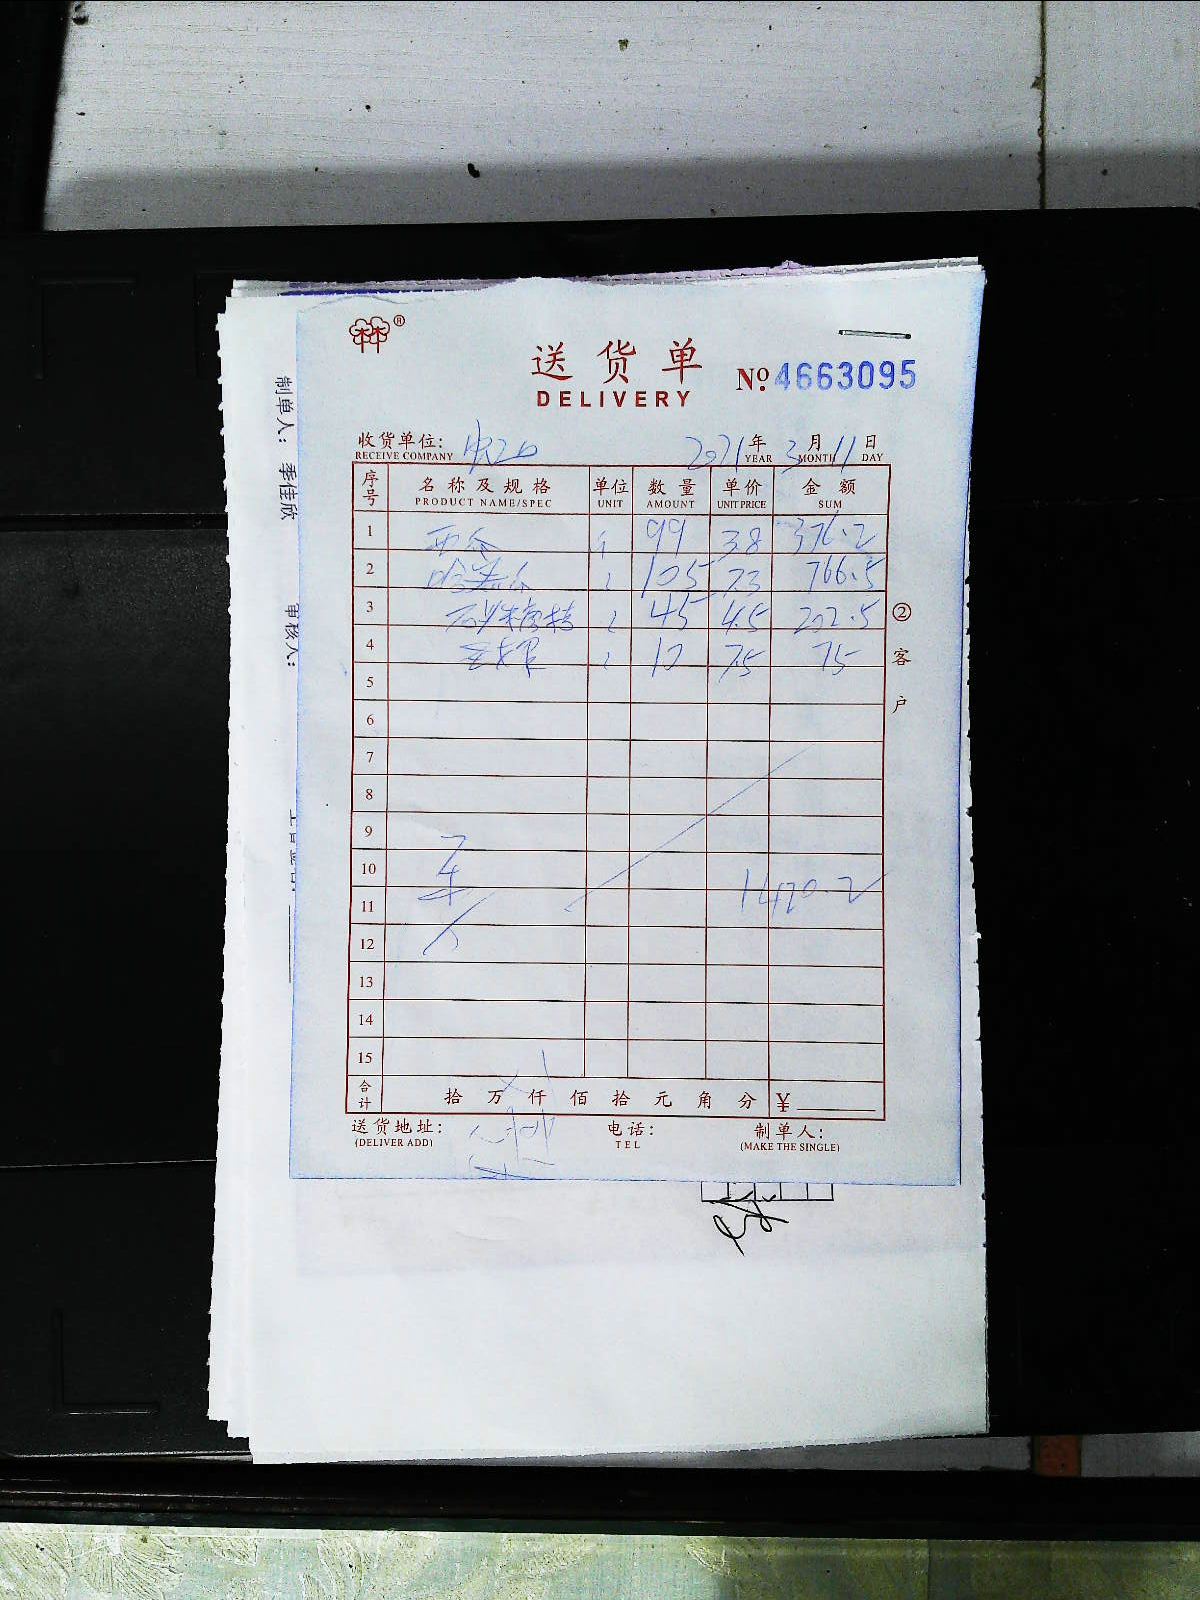 ®
送货单
DELIVERY
№ 4663095
收货单位:
RECEIVE COMPANY
2021年3月11日
YEAR MONTH DAY
序号 名称及规格 单位 数量 单价 金额
PRODUCT NAME/SPEC UNIT AMOUNT UNIT PRICE SUM
1 西瓜 斤 99 3.8 376.2
2 哈密瓜 105 7.3 766.5
3 45 4.5 202.5
4 10 7.5 75
5
6
7
8
9
10
1420.2
11
12
13
14
15
合计 拾 万 仟 佰 拾 元 角 分 ¥
送货地址: 电话: 制单人:
(DELIVER ADD) TEL (MAKE THE SINGLE)
② 客户
制单人: 季佳欣
审核人: